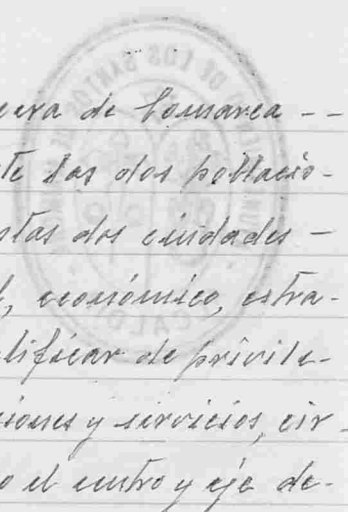 era de Comarca - -
te las dos poblacio-
stas dos ciudades -
l, económico, estra-
lificar de privile-
iones y servicios, cir-
o el centro y eje de-